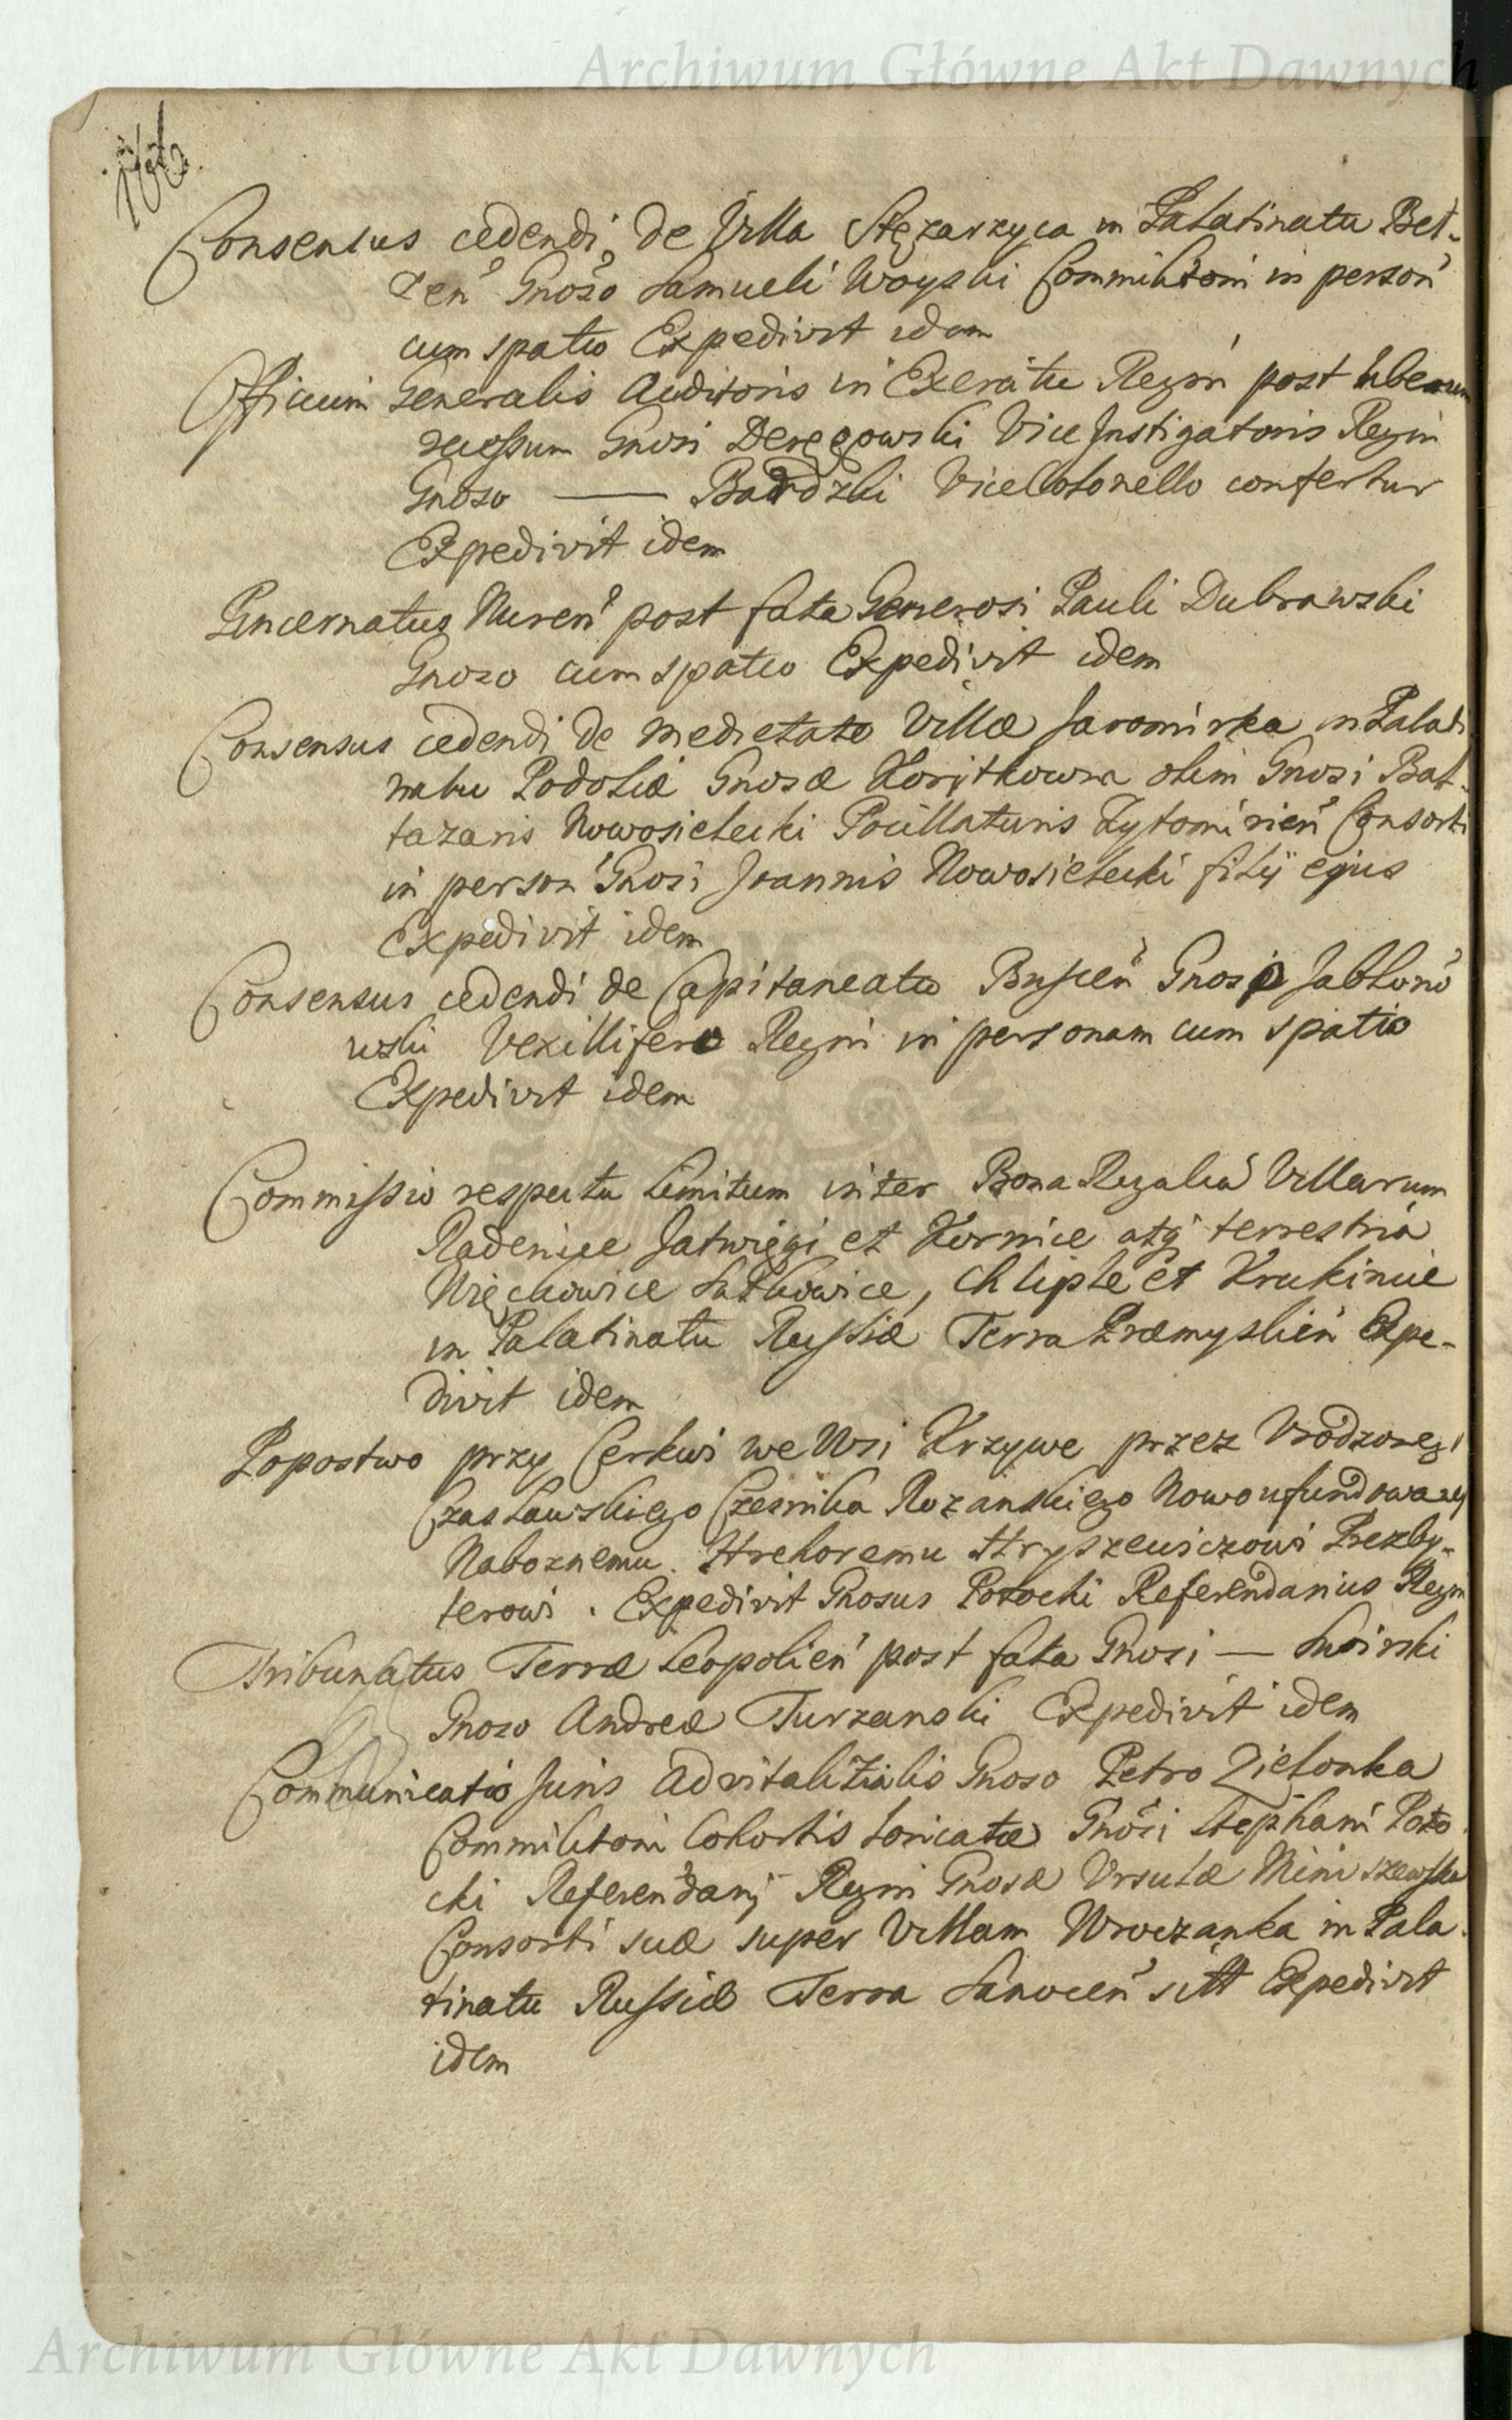 Archiwum Główne Akt Dawnych
166
Consensus cedendi de Villa Stęzarzyca in Palatinatu Bel-
zen̄ Gnoso Samueli Woyski Commilitoni in person̄
cum spatio Expedivit idem
Officium Generalis Auditoris in Exercitu Regni post liberum
recessum Gnosi Deręgowski Vice Instigatoris Regni
Gnoso — Bardzki ViceColonello confertur
Expedivit idem
Pincernatus Nuren̄ post fata Generosi Pauli Dubrawski
Gnoso cum spatio Expedivit idem
Consensus cedendi de medietate Villæ Jaromirka in Palati
natu Podoliæ Gnosæ Korytkowna olim Gnosi Bal-
tazaris Nowosielecki Pocillatoris Zytomirien̄ Consorti
in person̄ Gnosi Joannis Nowosielecki filij ejus
Expedivit idem
Consensus cedendi de Capitaneatu Buscen̄ Gnoso Jabłono
wski Vexillifero Regni in personam cum spatio
Expedivit idem
Commissio respectu limitum inter Bona Regalia Villarum
Radenice Jatwięgi et Kornice atq terrestria
Więckowice Sułkowice, Chliple et Krukinice
in Palatinatu Russiæ Terra Præmyslien̄ Expe-
divit idem
Popostwo przy Cerkwi we Wsi Krzywe przez Vrodzoneg
Czasławskiego Czesnika Rozanskiego Nowoufundowaney
Naboznemu Hrehoremu Hryszewiczowi Prezby-
terowi. Expedivit Gnosus Potocki Referendarius Regni
Tribunatus Terræ Leopolien̄ post fata Gnosi — Swirski
Gnoso Andreæ Turzanski Expedivit idem
Communicatio Juris Advitalitialis Gnoso Petro Zielonka
Commilitoni Cohortis Loricatæ Gnosi Stephani Poto
cki Referendarij Regni Gnosæ Vrsulæ Miniszewska
Consorti suæ super Villam Wroczanka in Pala
tinatu Russiæ Terra Sanocen̄ sitt Expedivit
idem
Archiwum Główne Akt Dawnych